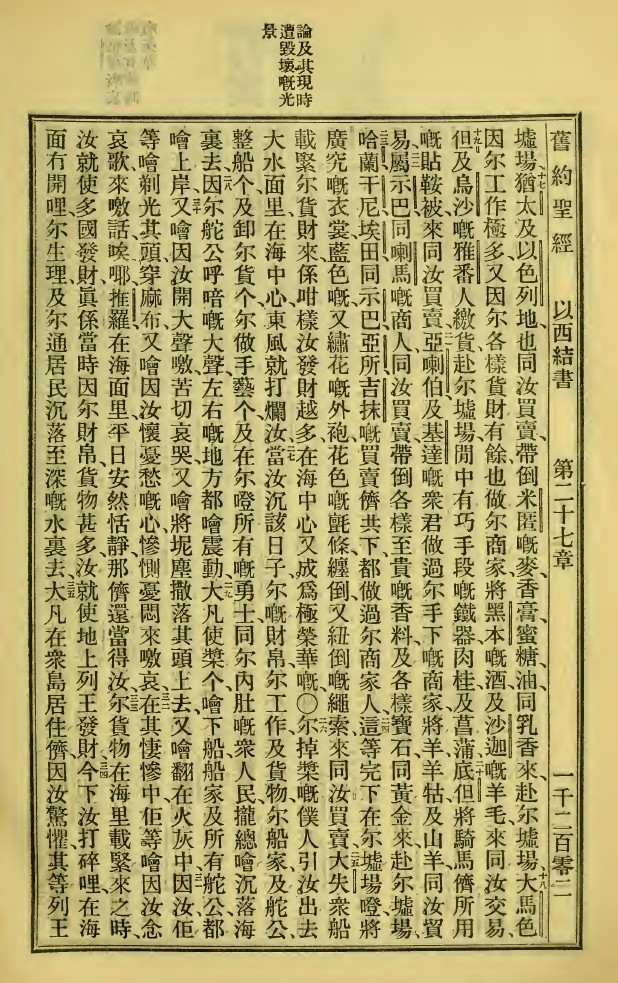 論及其現時
遭毀壞嘅光
景
舊約聖經 以西結書 第二十七章 一千二百零二
墟場、十七猶太及以色列地也同汝買賣、帶倒米匿嘅麥、香膏、蜜糖、油、同乳香來赴尔墟場、十八大馬色
因尔工作極多、又因尔各樣貨財有餘、也做尔商家、將黑本嘅酒及沙迦嘅羊毛來同汝交易、
十九但及烏沙嘅雅番人繳貨赴尔墟場、閒中有巧手段嘅鐵器肉桂及菖蒲、二十底但將騎馬儕所用
嘅貼鞍被來同汝買賣、二一亞喇伯及基達嘅衆君做過尔手下嘅商家、將羊羊牯及山羊同汝貿
易、二二屬示巴同喇馬嘅商人同汝買賣、帶倒各樣至貴嘅香料及各樣寶石同黃金來赴尔墟場、
二三哈蘭干尼埃田同示巴亞所吉抹嘅買賣儕共下都做過尔商家人、二四這等完下在尔墟場噔將
廣究嘅衣裳藍色嘅又繡花嘅外袍花色嘅氈條纏倒又紐倒嘅繩索來同汝買賣、二五大失衆船
載緊尔貨財來、係咁樣汝發財越多、在海中心又成爲極榮華嘅〇二六尔掉槳嘅僕人引汝出去
大水面里、在海中心東風就打爛汝、二七當汝沉該日子、尔嘅財帛尔工作及貨物尔船家及舵公、
整船个及卸尔貨个尔做手藝个及在尔噔所有嘅勇士同尔內肚嘅衆人民攏總噲沉落海
裏去、二八因尔舵公呼喑嘅大聲、左右嘅地方都噲震動、二九大凡使槳个噲下船、船家及所有舵公都
噲上岸、三十又噲因汝開大聲噭苦切哀哭、又噲將坭塵撒落其頭上去、又噲翻在火灰中、三一因汝佢
等噲剃光其頭穿麻布、又噲因汝懷憂愁嘅心慘惻憂悶來噭哀、三二在其悽慘中佢等噲因汝念
哀歌來噭話、唉哪、推羅在海面里平日安然恬靜、那儕還當得汝、三三尔貨物在海里載緊來之時、
汝就使多國發財、眞係當時因尔財帛貨物甚多、汝就使地上列王發財、三四今下汝打碎哩、在海
面冇開哩、尔生理及尔通居民沉落至深嘅水裏去、三五大凡在衆島居住儕、因汝驚懼、其等列王